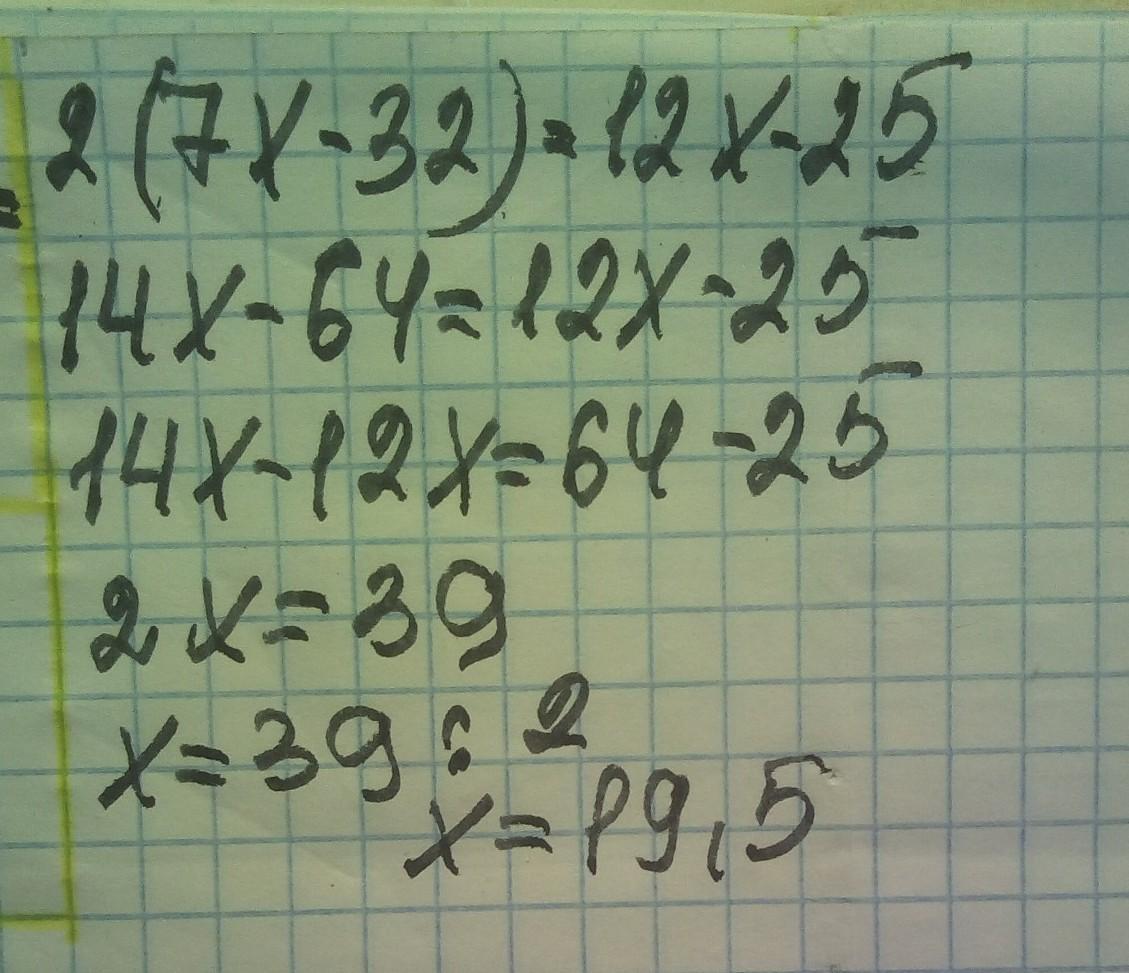 2(7x-32)=12x-25
14x-64=12x-25
14x-12x=64-25
2x=39
x=39:2
x=19,5